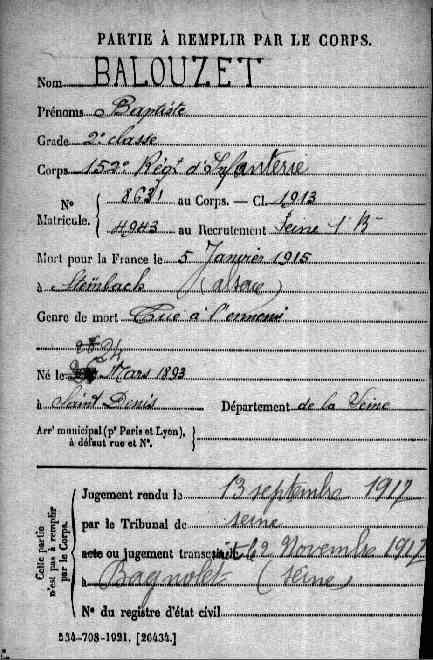 PARTIE À REMPLIR PAR LE CORPS.
Nom BALOUZET
Prénoms Baptiste
Grade 2e classe
Corps 152e Régt d'Infanterie
No Matricule. 8631 au Corps. — Cl. 1913
4943 au Recrutement Seine 1 B
Mort pour la France le 5 Janvier 1915
à Steinbach (alsace)
Genre de mort Tué à l'ennemi
24
Né le Mars 1893
à Saint Denis Département de la Seine
Arrt municipal (pr Paris et Lyon), à défaut rue et No.
Cette partie n'est pas à remplir par le Corps.
Jugement rendu le 13 septembre 1917
par le Tribunal de seine
acte ou jugement transcrit le Novembre 1917
à Bagnolet (seine)
No du registre d'état civil
534-708-1921. [26434.]